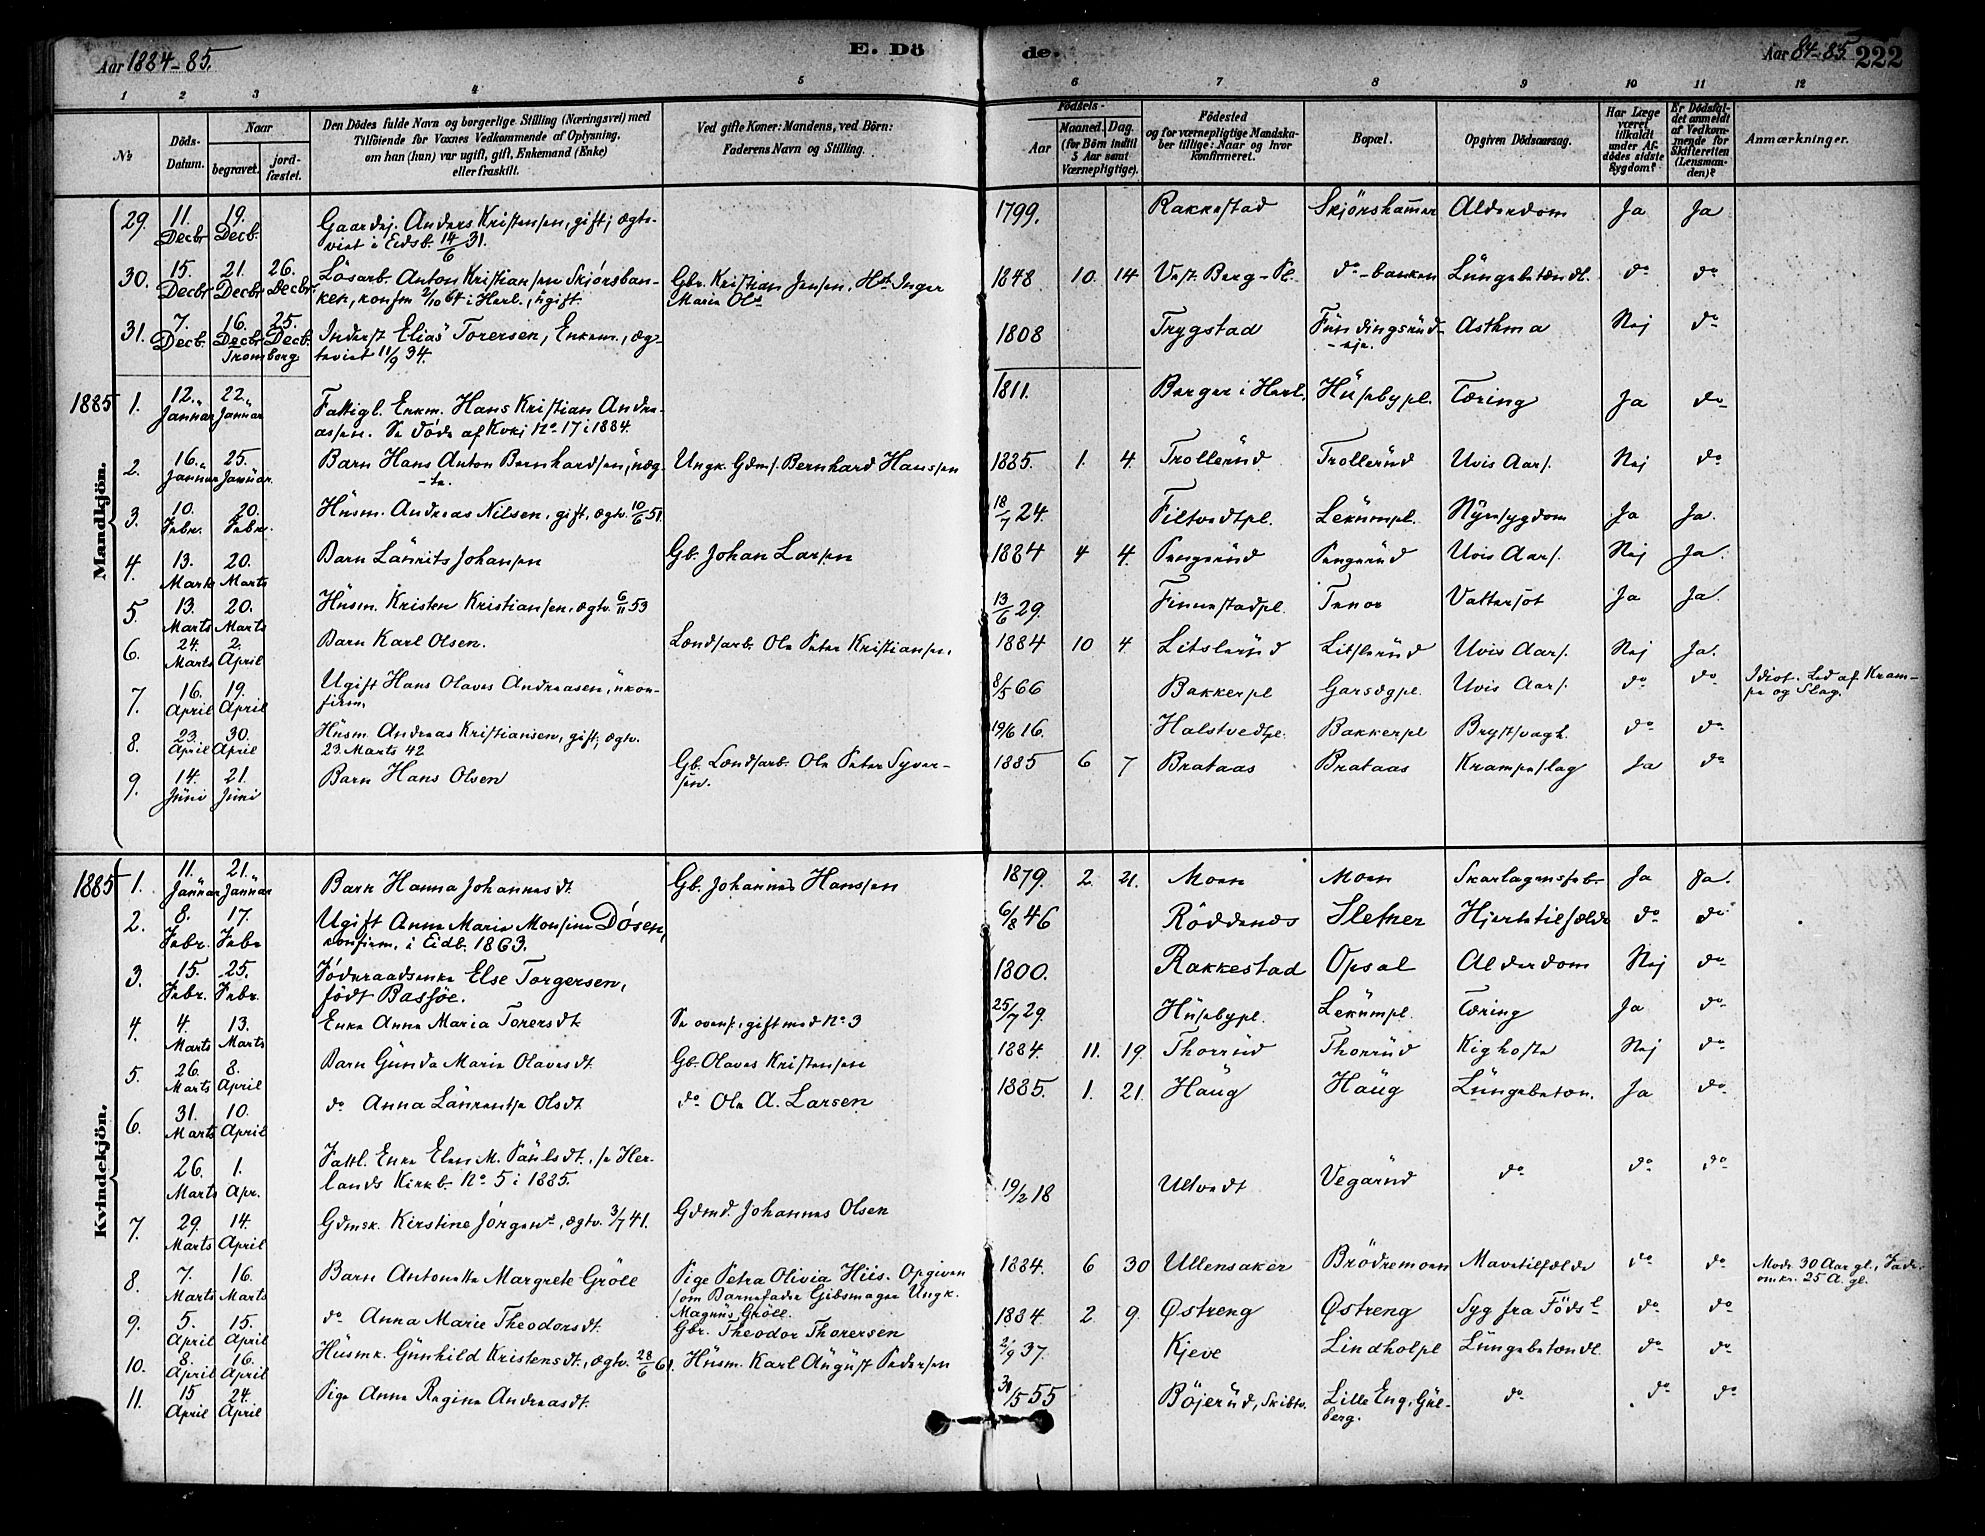 Aar 1884-85.
E. Dö
de.
Aar 84-85
222
1 2 3 4 5 6 7 8 9 10 11 12
No
Döds-Datum.
Naar
begravet.
jord-fæstet.
Den Dödes fulde Navn og borgerlige Stilling (Næringsvei) med
Tilföiende for Voxnes Vedkommende af Oplysning,
om han (hun) var ugift, gift, Enkemand (Enke)
eller fraskilt.
Ved gifte Koner: Mandens, ved Börn:
Faderens Navn og Stilling.
Födsels-
Aar
Maaned. Dag.
(for Börn indtil
5 Aar samt
Værnepligtige).
Födested
og for værnepligtige Mandska-
ber tillige: Naar og hvor
konfirmeret.
Bopæl.
Opgiven Dödsaarsag.
Har Læge
været
tilkaldt
under Af-
dödes sidste
Sygdom?
Er Dödsfal-
det anmeldt
af Vedkom-
mende for
Skifteretten
(Lensman-
den)?
Anmærkninger.
Mandkjön.
29. 11. Decbr 19. Decb. Gaardej. Anders Kristensen, gift, ægte- 1799. Rakkestad Skjörshammer Alderdom Ja Ja
viet i Eidsb. 14/6 31.
30. 15. Decbr 21. Decbr 26. Decbr. Lösarb. Anton Kristiansen Skjørsban- Gbr. Kristian Jensen, Hst Inger 1848 10. 14 Vest. Berg-Pl. do-banken Lungebetændl. do do
ken, konfm 2/10 64 i Herl., ugift. Marie Olsd
31. 7. Decb. 16. Decbr 25. Decb. Inderst Elias Torersen, Enkem., æg- 1808 Trygstad Fundingsrud- Asthma Nej do
Tromborg teviet 11/9 34. -eje.
1885 1. 12. Januar 22. Januar Fattigl. Enkm. Hans Kristian Andre- 1811. Berger i Herl. Husebypl. Tæring Ja do
assen. Se døde af Kvkj No 17 i 1884.
2. 16. Januar 25. Januar. Barn Hans Anton Bernhardsen, uæg- Ungk. Gdms. Bernhard Hanssen 1885. 1. 4. Trollerud Trollerud Uvis Aars. Nej do
-te.
3. 10. Febr. 20. Febr. Husm. Andreas Nilsen, gift, ægtv. 10/6 51 18/7 24. Filtvedtpl. Lekumpl. Nyresygdom Ja Ja.
4. 13. Marts 20. Marts Barn Laurits Johansen Gb. Johan Larsen 1884 4 4. Pengerud Pengerud Uvis Aars. Nej Ja.
5. 13. Marts 20. Marts Husm. Kristen Kristiansen, ægtv. 6/11 53 13/6 29. Finnestadpl. Tenor Vattersot Ja Ja.
6. 24. Marts 2. April Barn Karl Olsen. Lændsarb. Ole Peter Kristiansen. 1884 10 4. Litslerud Litslerud Uvis Aars. Nej Ja.
7. 16. April 19. April Ugift Hans Olaves Andreasen, ukon- 8/5 66 Bakkerpl Garsegpl. Uvis Aars. do do Idiot. Led af Kram-
firm. pe og Slag.
8. 23. April 30. April Husm. Andreas Kristiansen, gift, ægtv. 19/6 16. Halstvedtpl. Bakkerpl Brystsvagh. do do
23. Marts 42
9. 14. Juni 21. Juni Barn Hans Olsen Gb. Lændsarb. Ole Peter Syver- 1885 6 7 Brataas Brataas Krampeslag Ja do
sen.
Kvindekjön.
1885 1. 11. Januar 21. Januar Barn Hanna Johannesdt. Gb. Johannes Hanssen 1879. 2. 21. Moen Moen Skarlagensfeb. Ja Ja.
2. 8. Febr. 17. Febr Ugift Anne Marie Monsine Døsen, 6/8 46 Röddenes Sletner Hjertetilfælde do do
konfirm. i Eidb. 1863.
3. 15. Febr. 25. Febr. Föderaadsenke Else Torgersen, 1800. Rakkestad Opsal Alderdom Nej do
født Bassøe.
4. 4. Marts 13. Marts Enke Anne Maria Torersdt. Se ovenf., gift med No 3 25/7 29. Husebypl. Lekumpl. Tæring Ja do
5. 26. Marts 8. April Barn Gunda Marie Olavesdt. Gb. Olaves Kristensen 1884. 11. 19. Thorrud Thorrud Kighoste Nej do
6. 31. Marts 10. April do Anna Laurentse Olsdt. do Ole A. Larsen 1885. 1. 21. Haug Haug Lungebeten. Ja do
26. Marts 1. Apr. Fattl. Enke Elen M. Paulsdt., se Her- 19/2 18 Ultvedt Vegarud do do do
lands Kirkb. No 5 i 1885.
7. 29. Marts 14. April Gdmsk. Kirstine Jørgensd, ægtv. 3/7 41. Gdmd. Johannes Olsen
8. 7. Marts 16. Marts Barn Antonette Margrete Gröll Pige Petra Olivia Hiis. Opgiven 1884. 6 30 Ullensaker Brödremoen Mavetilfælde do do Mode 30 Aar gl., Fade
som Barnefader Gibsmager Ungk. omkr. 25 A. gl.
Magnus Gröll.
9. 5. April 15. April do Anna Marie Theodorsdt. Gbr. Theodor Thorersen 1884 2. 9. Østreng Østreng Syg fra Födsl do do
10. 8. April 16. April Husmk. Gunhild Kristensdt., ægtv. 28/6 61. Husm. Karl August Pedersen 2/9 37. Kjeve Lindholpl Lungebetændl. do do
11. 15 April 24. April Pige Anne Regine Andreasdt. 30/5 55 Böjerud, Skibtv. Lille Eng, Gul- do do do
berg.